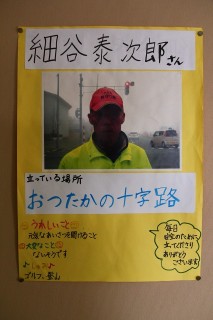 細谷泰次郎さん
立っている場所
おつたかの十字路
うれしいこと
元気なあいさつを聞けること
大変なこと
ないそうです
ゴルフ、登山
毎日
安全のために
立ってくださり
ありがとう
ございます!